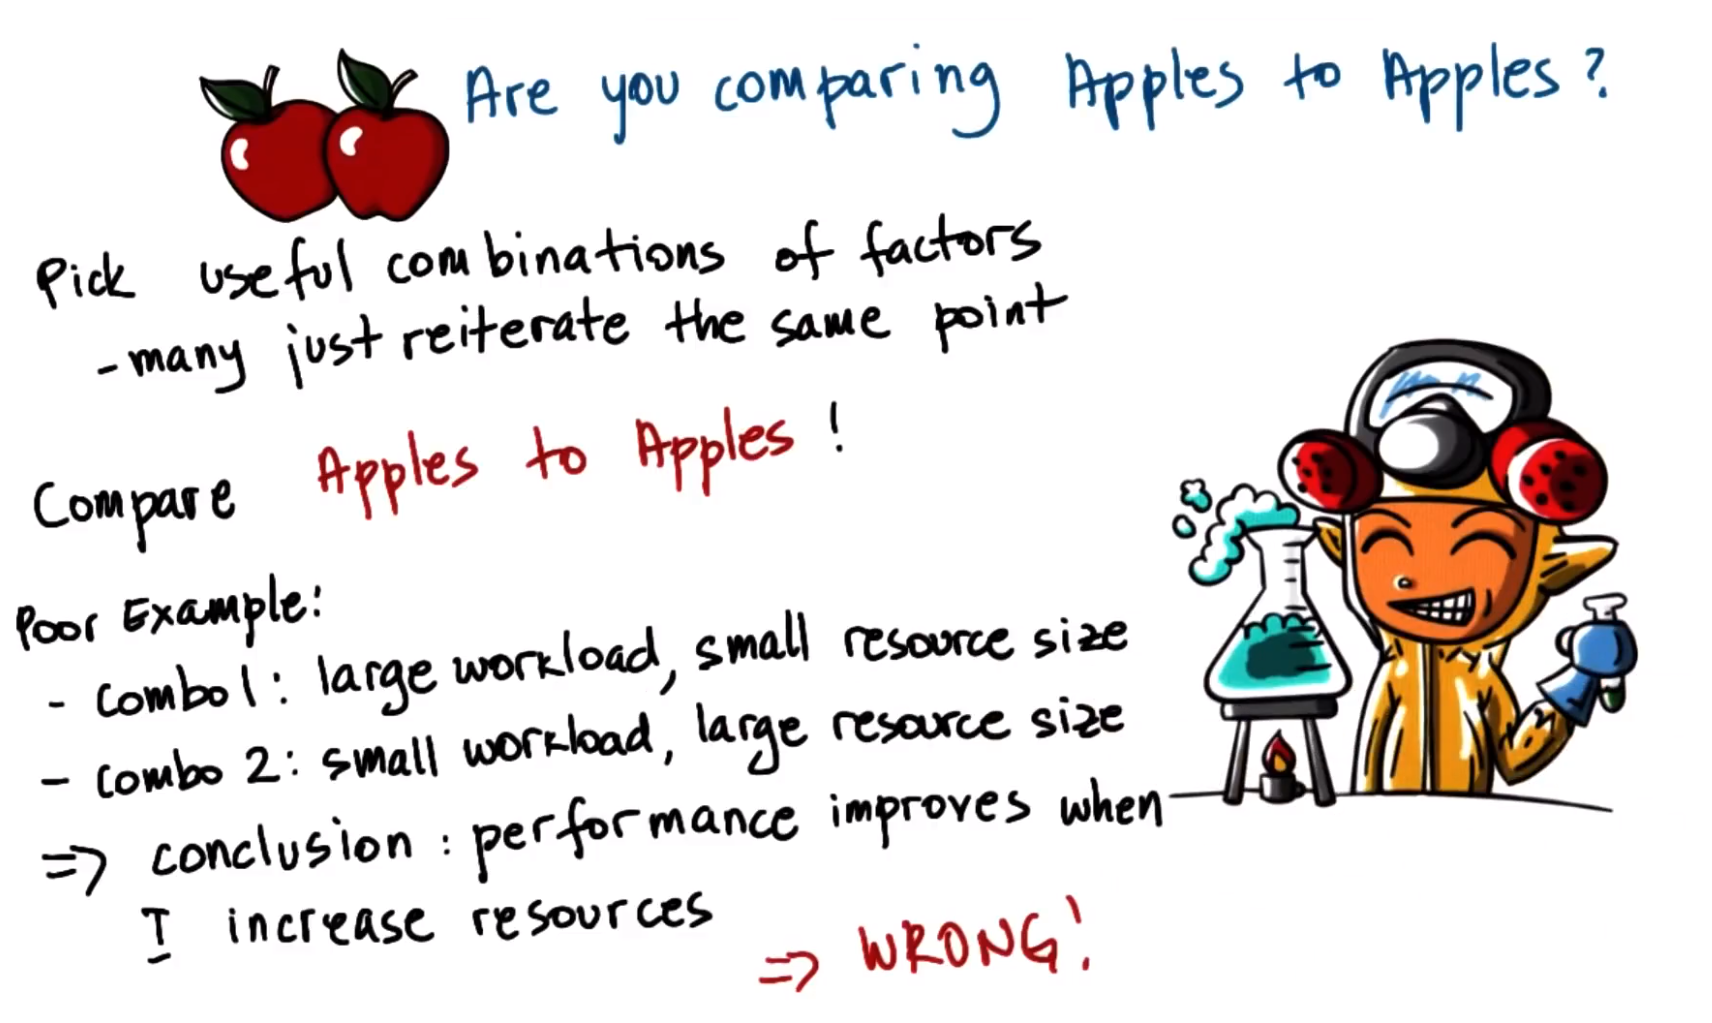 Are you comparing Apples to Apples?
Pick useful combinations of factors
- many just reiterate the same point
Compare Apples to Apples!
Poor Example:
- combo 1: large workload, small resource size
- combo 2: small workload, large resource size
=> conclusion: performance improves when
I increase resources
=> WRONG!